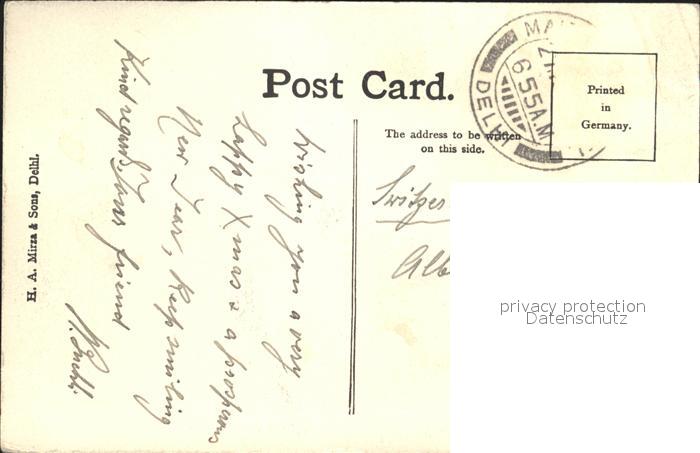 Post Card.
The address to be written
on this side.
Printed
in
Germany.
DELHI
6 55 A.M
H. A. Mirza & Sons, Delhi.
Wishing you a very
happy Xmas & a prosperous
New Year, Keep smiling
Kind regards Your friend
Switzer
Alb
privacy protection
Datenschutz